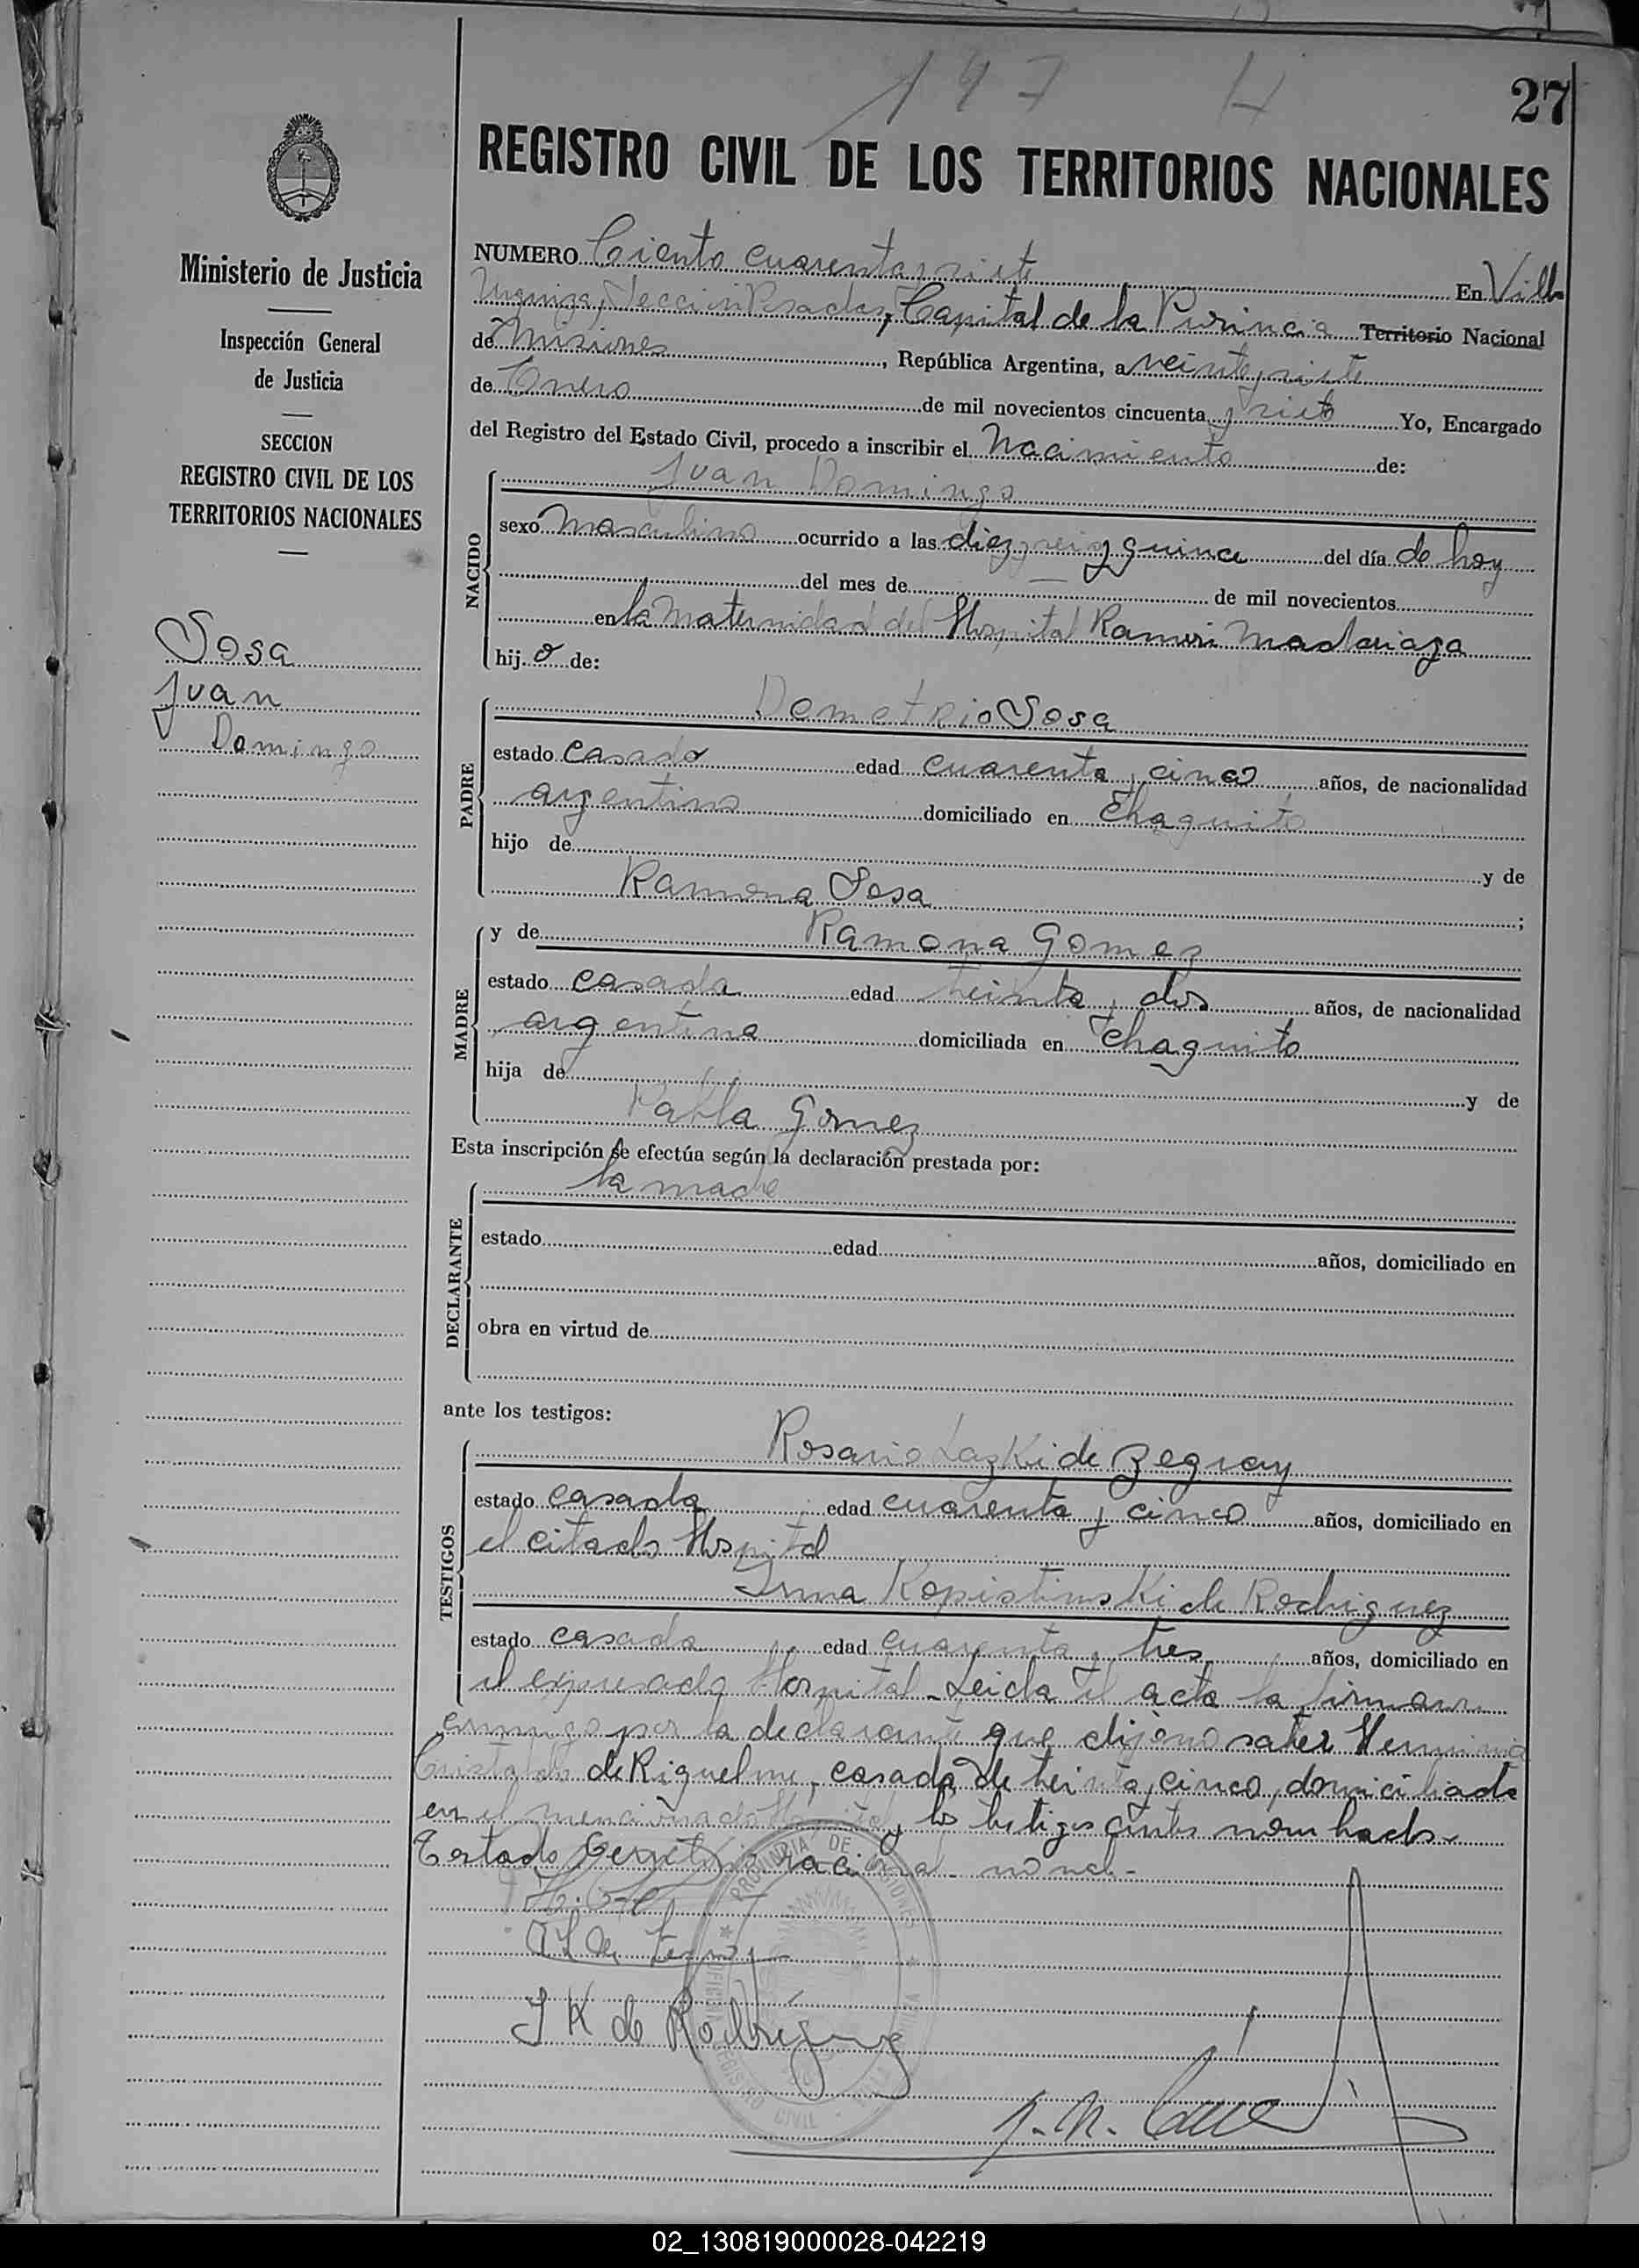 147
27
REGISTRO CIVIL DE LOS TERRITORIOS NACIONALES
Ministerio de Justicia
Inspección General
de Justicia
SECCION
REGISTRO CIVIL DE LOS
TERRITORIOS NACIONALES
Sosa
Juan
Domingo
NUMERO Ciento cuarenta y siete En Villa
Urquiza, Sección Posadas, Capital de la Provincia Territorio Nacional
de Misiones, República Argentina, a veinte y siete
de Enero de mil novecientos cincuenta y siete Yo, Encargado
del Registro del Estado Civil, procedo a inscribir el Nacimiento de:
NACIDO
Juan Domingo
sexo masculino ocurrido a las diez y seis y quince del día de hoy
del mes de — de mil novecientos
en la Maternidad del Hospital Ramón Madariaga
hijo de:
PADRE
Demetrio Sosa
estado casado edad cuarenta y cinco años, de nacionalidad
argentino domiciliado en Chaquito
hijo de y de
Ramona Sosa ;
MADRE
y de Ramona Gomez
estado casada edad treinta y dos años, de nacionalidad
argentina domiciliada en Chaquito
hija de y de
Pabla Gomez
Esta inscripción se efectúa según la declaración prestada por:
DECLARANTE
la madre
estado edad años, domiciliado en
obra en virtud de
ante los testigos:
TESTIGOS
Rosario Lazki de
estado casada edad cuarenta y cinco años, domiciliado en
el citado Hospital
Irma Kopistinski de Rodriguez
estado casada edad cuarenta y tres años, domiciliado en
el expresado Hospital. Leida el acta la firmaron
conmigo por la declarante que dijo no saber Herminia
de Riquelme, casada de treinta y cinco, domiciliada
en el mencionado Hospital y los testigos antes nombrados.
Testado Territorio nacional no vale.
I K de Rodriguez
PROVINCIA DE MISIONES
REGISTRO CIVIL
02_130819000028-042219